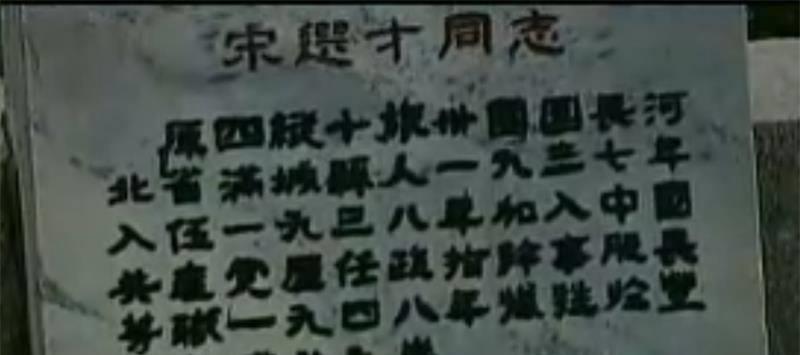 宋選才同志
原四縱十旅卅團團長河
北省滿城縣人一九三七年
入伍一九三八年加入中國
共產党歷任政指幹事股長
等職一九四八年犧牲於豐